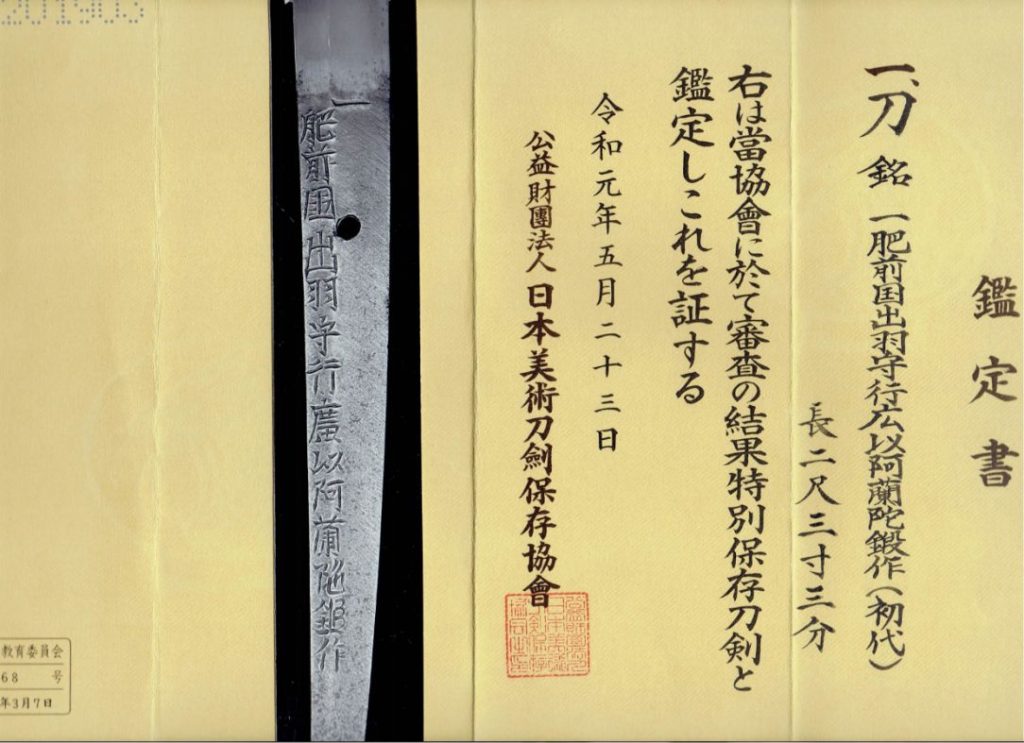 鑑定書
一、刀 銘 一肥前国出羽守行広以阿蘭陀鍛作(初代)
長二尺三寸三分
右は當協會に於て審査の結果特別保存刀剣と
鑑定しこれを証する
令和元年五月二十三日
公益財團法人日本美術刀劍保存協會
一肥前国出羽守行廣以阿蘭陀鍛作
201903
教育委員会
68 号
年3月7日